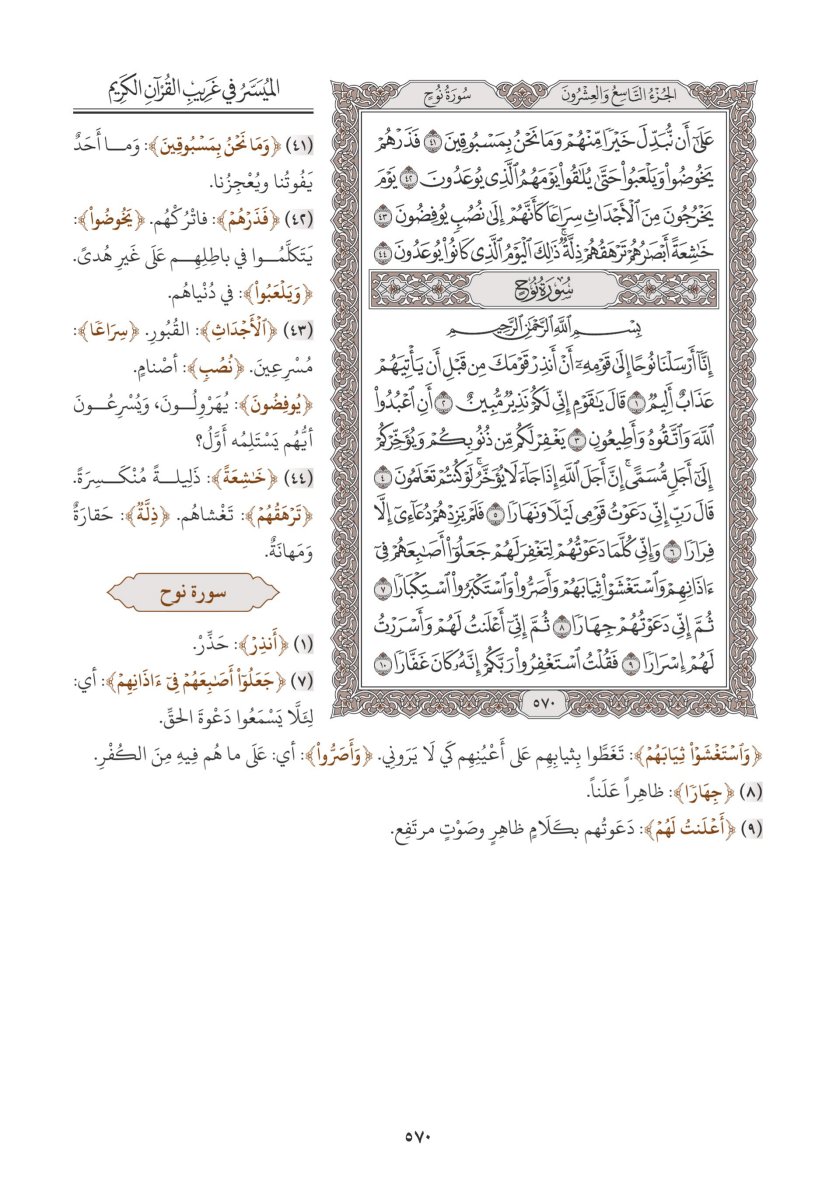 الجُزْءُ التَّاسِعُ وَالعِشْرُونَ
سُورَةُ نُوحٍ
عَلَىٰٓ أَن نُّبَدِّلَ خَيْرًا مِّنْهُمْ وَمَا نَحْنُ بِمَسْبُوقِينَ ٤١ فَذَرْهُمْ
يَخُوضُوا۟ وَيَلْعَبُوا۟ حَتَّىٰ يُلَٰقُوا۟ يَوْمَهُمُ ٱلَّذِى يُوعَدُونَ ٤٢ يَوْمَ
يَخْرُجُونَ مِنَ ٱلْأَجْدَاثِ سِرَاعًا كَأَنَّهُمْ إِلَىٰ نُصُبٍ يُوفِضُونَ ٤٣
خَٰشِعَةً أَبْصَٰرُهُمْ تَرْهَقُهُمْ ذِلَّةٌ ۚ ذَٰلِكَ ٱلْيَوْمُ ٱلَّذِى كَانُوا۟ يُوعَدُونَ ٤٤
سُورَةُ نُوحٍ
بِسْمِ ٱللَّهِ ٱلرَّحْمَٰنِ ٱلرَّحِيمِ
إِنَّآ أَرْسَلْنَا نُوحًا إِلَىٰ قَوْمِهِۦٓ أَنْ أَنذِرْ قَوْمَكَ مِن قَبْلِ أَن يَأْتِيَهُمْ
عَذَابٌ أَلِيمٌ ١ قَالَ يَٰقَوْمِ إِنِّى لَكُمْ نَذِيرٌ مُّبِينٌ ٢ أَنِ ٱعْبُدُوا۟
ٱللَّهَ وَٱتَّقُوهُ وَأَطِيعُونِ ٣ يَغْفِرْ لَكُم مِّن ذُنُوبِكُمْ وَيُؤَخِّرْكُمْ
إِلَىٰٓ أَجَلٍ مُّسَمًّى ۚ إِنَّ أَجَلَ ٱللَّهِ إِذَا جَآءَ لَا يُؤَخَّرُ ۖ لَوْ كُنتُمْ تَعْلَمُونَ ٤
قَالَ رَبِّ إِنِّى دَعَوْتُ قَوْمِى لَيْلًا وَنَهَارًا ٥ فَلَمْ يَزِدْهُمْ دُعَآءِىٓ إِلَّا
فِرَارًا ٦ وَإِنِّى كُلَّمَا دَعَوْتُهُمْ لِتَغْفِرَ لَهُمْ جَعَلُوٓا۟ أَصَٰبِعَهُمْ فِىٓ
ءَاذَانِهِمْ وَٱسْتَغْشَوْا۟ ثِيَابَهُمْ وَأَصَرُّوا۟ وَٱسْتَكْبَرُوا۟ ٱسْتِكْبَارًا ٧
ثُمَّ إِنِّى دَعَوْتُهُمْ جِهَارًا ٨ ثُمَّ إِنِّىٓ أَعْلَنتُ لَهُمْ وَأَسْرَرْتُ
لَهُمْ إِسْرَارًا ٩ فَقُلْتُ ٱسْتَغْفِرُوا۟ رَبَّكُمْ إِنَّهُۥ كَانَ غَفَّارًا ١٠
٥٧٠
المُيَسَّرُ في غَرِيبِ القُرْآنِ الكَرِيم
(٤١) ﴿وَمَا نَحْنُ بِمَسْبُوقِينَ﴾: وَمـا أَحَدٌ
يَفُوتُنا ويُعْجِزُنا.
(٤٢) ﴿فَذَرْهُمْ﴾: فاتْرُكْهُم. ﴿يَخُوضُوا۟﴾:
يَتَكلَّمُـوا في باطِلِهِـم عَلَى غَيرِ هُدىً.
﴿وَيَلْعَبُوا۟﴾: في دُنْياهُم.
(٤٣) ﴿ٱلْأَجْدَاثِ﴾: القُبُورِ. ﴿سِرَاعًا﴾:
مُسْرِعِينَ. ﴿نُصُبٍ﴾: أصْنامٍ.
﴿يُوفِضُونَ﴾: يُهَرْوِلُـونَ، وَيُسْرِعُـونَ
أيُّهُم يَسْتَلِمُه أَوَّلُ؟
(٤٤) ﴿خَٰشِعَةً﴾: ذَلِيلـةً مُنْكَـسِرَةً.
﴿تَرْهَقُهُمْ﴾: تَغْشاهُم. ﴿ذِلَّةٌ﴾: حَقارَةٌ
وَمَهانَةٌ.
سورة نوح
(١) ﴿أَنذِرْ﴾: حَذِّرْ.
(٧) ﴿جَعَلُوٓا۟ أَصَٰبِعَهُمْ فِىٓ ءَاذَانِهِمْ﴾: أي:
لِئَلَّا يَسْمَعُوا دَعْوَةَ الحَقِّ.
﴿وَٱسْتَغْشَوْا۟ ثِيَابَهُمْ﴾: تَغَطَّوا بِثيابِهِم عَلى أَعْيُنِهِم كَي لَا يَرَوني. ﴿وَأَصَرُّوا۟﴾: أي: عَلَى ما هُم فِيهِ مِنَ الكُفْرِ.
(٨) ﴿جِهَارًا﴾: ظاهِراً عَلَناً.
(٩) ﴿أَعْلَنتُ لَهُمْ﴾: دَعَوتُهم بكَلَامٍ ظاهِرٍ وصَوْتٍ مرتَفِع.
٥٧٠